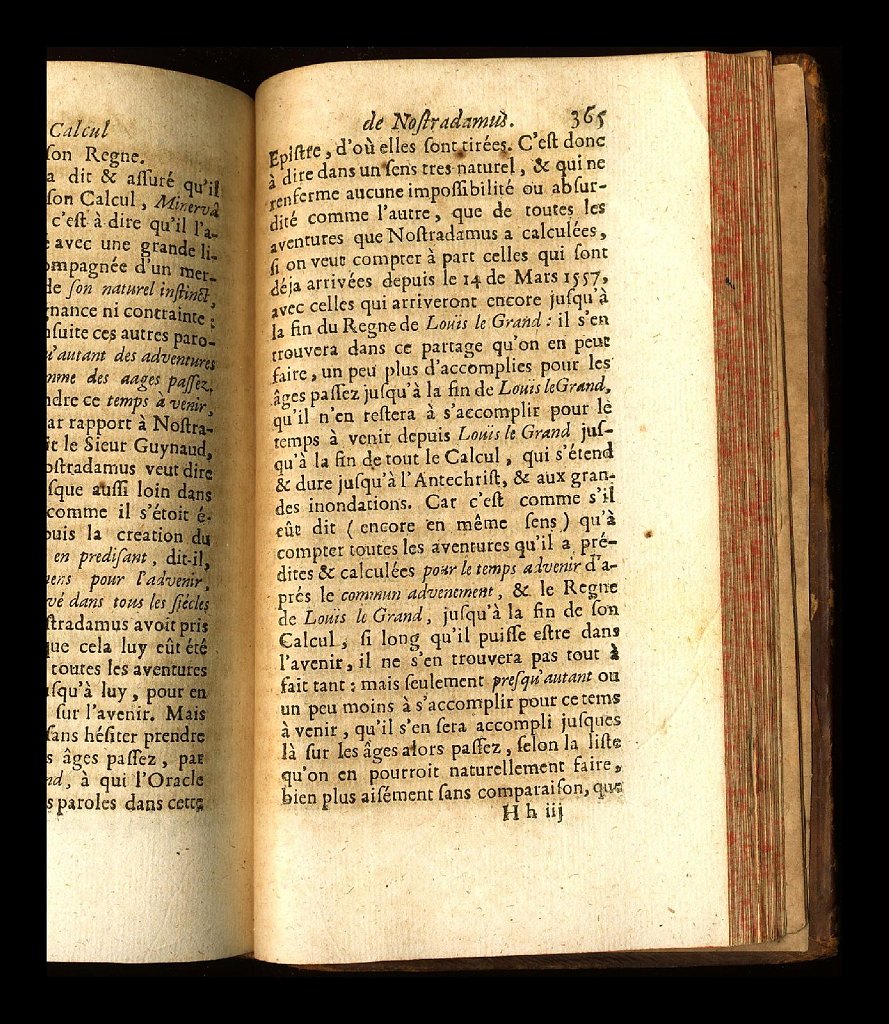 Calcul
ſon Regne.
a dit & aſſuré qu'il
ſon Calcul, Minerva
c'eſt à dire qu'il l'a-
avec une grande li-
ompagnée d'un mer-
de ſon naturel inſtinct,
nance ni contrainte ;
nſuite ces autres paro-
u'autant des adventures
mme des aages paſſez,
ndre ce temps à venir,
ar rapport à Noſtra-
it le Sieur Guynaud,
oſtradamus veut dire
ſque auſſi loin dans
comme il s'étoit é-
uis la creation du
en prediſant, dit-il,
mens pour l'advenir,
vé dans tous les ſiécles
ſtradamus avoit pris
que cela luy eût été
toutes les aventures
uſqu'à luy, pour en
ſur l'avenir. Mais
ſans héſiter prendre
s âges paſſez, par
nd, à qui l'Oracle
s paroles dans cette
de Noſtradamus. 365
Epiſtre, d'où elles ſont tirées. C'eſt donc
à dire dans un ſens tres naturel, & qui ne
renferme aucune impoſſibilité ou abſur-
dité comme l'autre, que de toutes les
aventures que Noſtradamus a calculées,
ſi on veut compter à part celles qui ſont
déja arrivées depuis le 14 de Mars 1557,
avec celles qui arriveront encore juſqu'à
la fin du Regne de Louïs le Grand : il s'en
trouvera dans ce partage qu'on en peut
faire, un peu plus d'accomplies pour les
âges paſſez juſqu'à la fin de Louïs le Grand,
qu'il n'en reſtera à s'accomplir pour le
temps à venir depuis Louïs le Grand juſ-
qu'à la fin de tout le Calcul, qui s'étend
& dure juſqu'à l'Antechriſt, & aux gran-
des inondations. Car c'eſt comme s'il
eût dit ( encore en même ſens ) qu'à
compter toutes les aventures qu'il a pré-
dites & calculées pour le temps advenir d'a-
prés le commun advenement, & le Regne
de Louïs le Grand, juſqu'à la fin de ſon
Calcul, ſi long qu'il puiſſe eſtre dans
l'avenir, il ne s'en trouvera pas tout à
fait tant : mais ſeulement preſqu'autant ou
un peu moins à s'accomplir pour ce tems
à venir, qu'il s'en ſera accompli juſques
là ſur les âges alors paſſez, ſelon la liſte
qu'on en pourroit naturellement faire,
bien plus aiſément ſans comparaiſon, que
H h iij